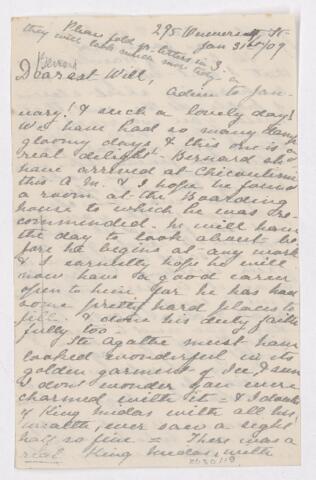 295 University St.
Jan 31st/09
Please fold yr. letters in 3 -
they will look much more tidy -
Dearest Will,
Adieu to Jan-
uary! & such a lovely day!
We have had so many damp
gloomy days & this one is a
real delight. Bernard sh'd
have arrived at Chicoutimi
this A.M. & I hope he found
a room at the Boarding
house to which he was re-
commended. he will have
the day to look about be-
fore he begins at any work
& I earnestly hope he will
now have a good career
open to him for he has had
some pretty hard places to
fill & done his duty faith
fully too -
Ste Agathe must have
looked wonderful in its
golden garment of Ice, & sun
I dont wonder you were
charmed with it - & I doubt
if King Midas with all his
wealth, ever saw a sight
half so fine = There was a
real King Midas, with